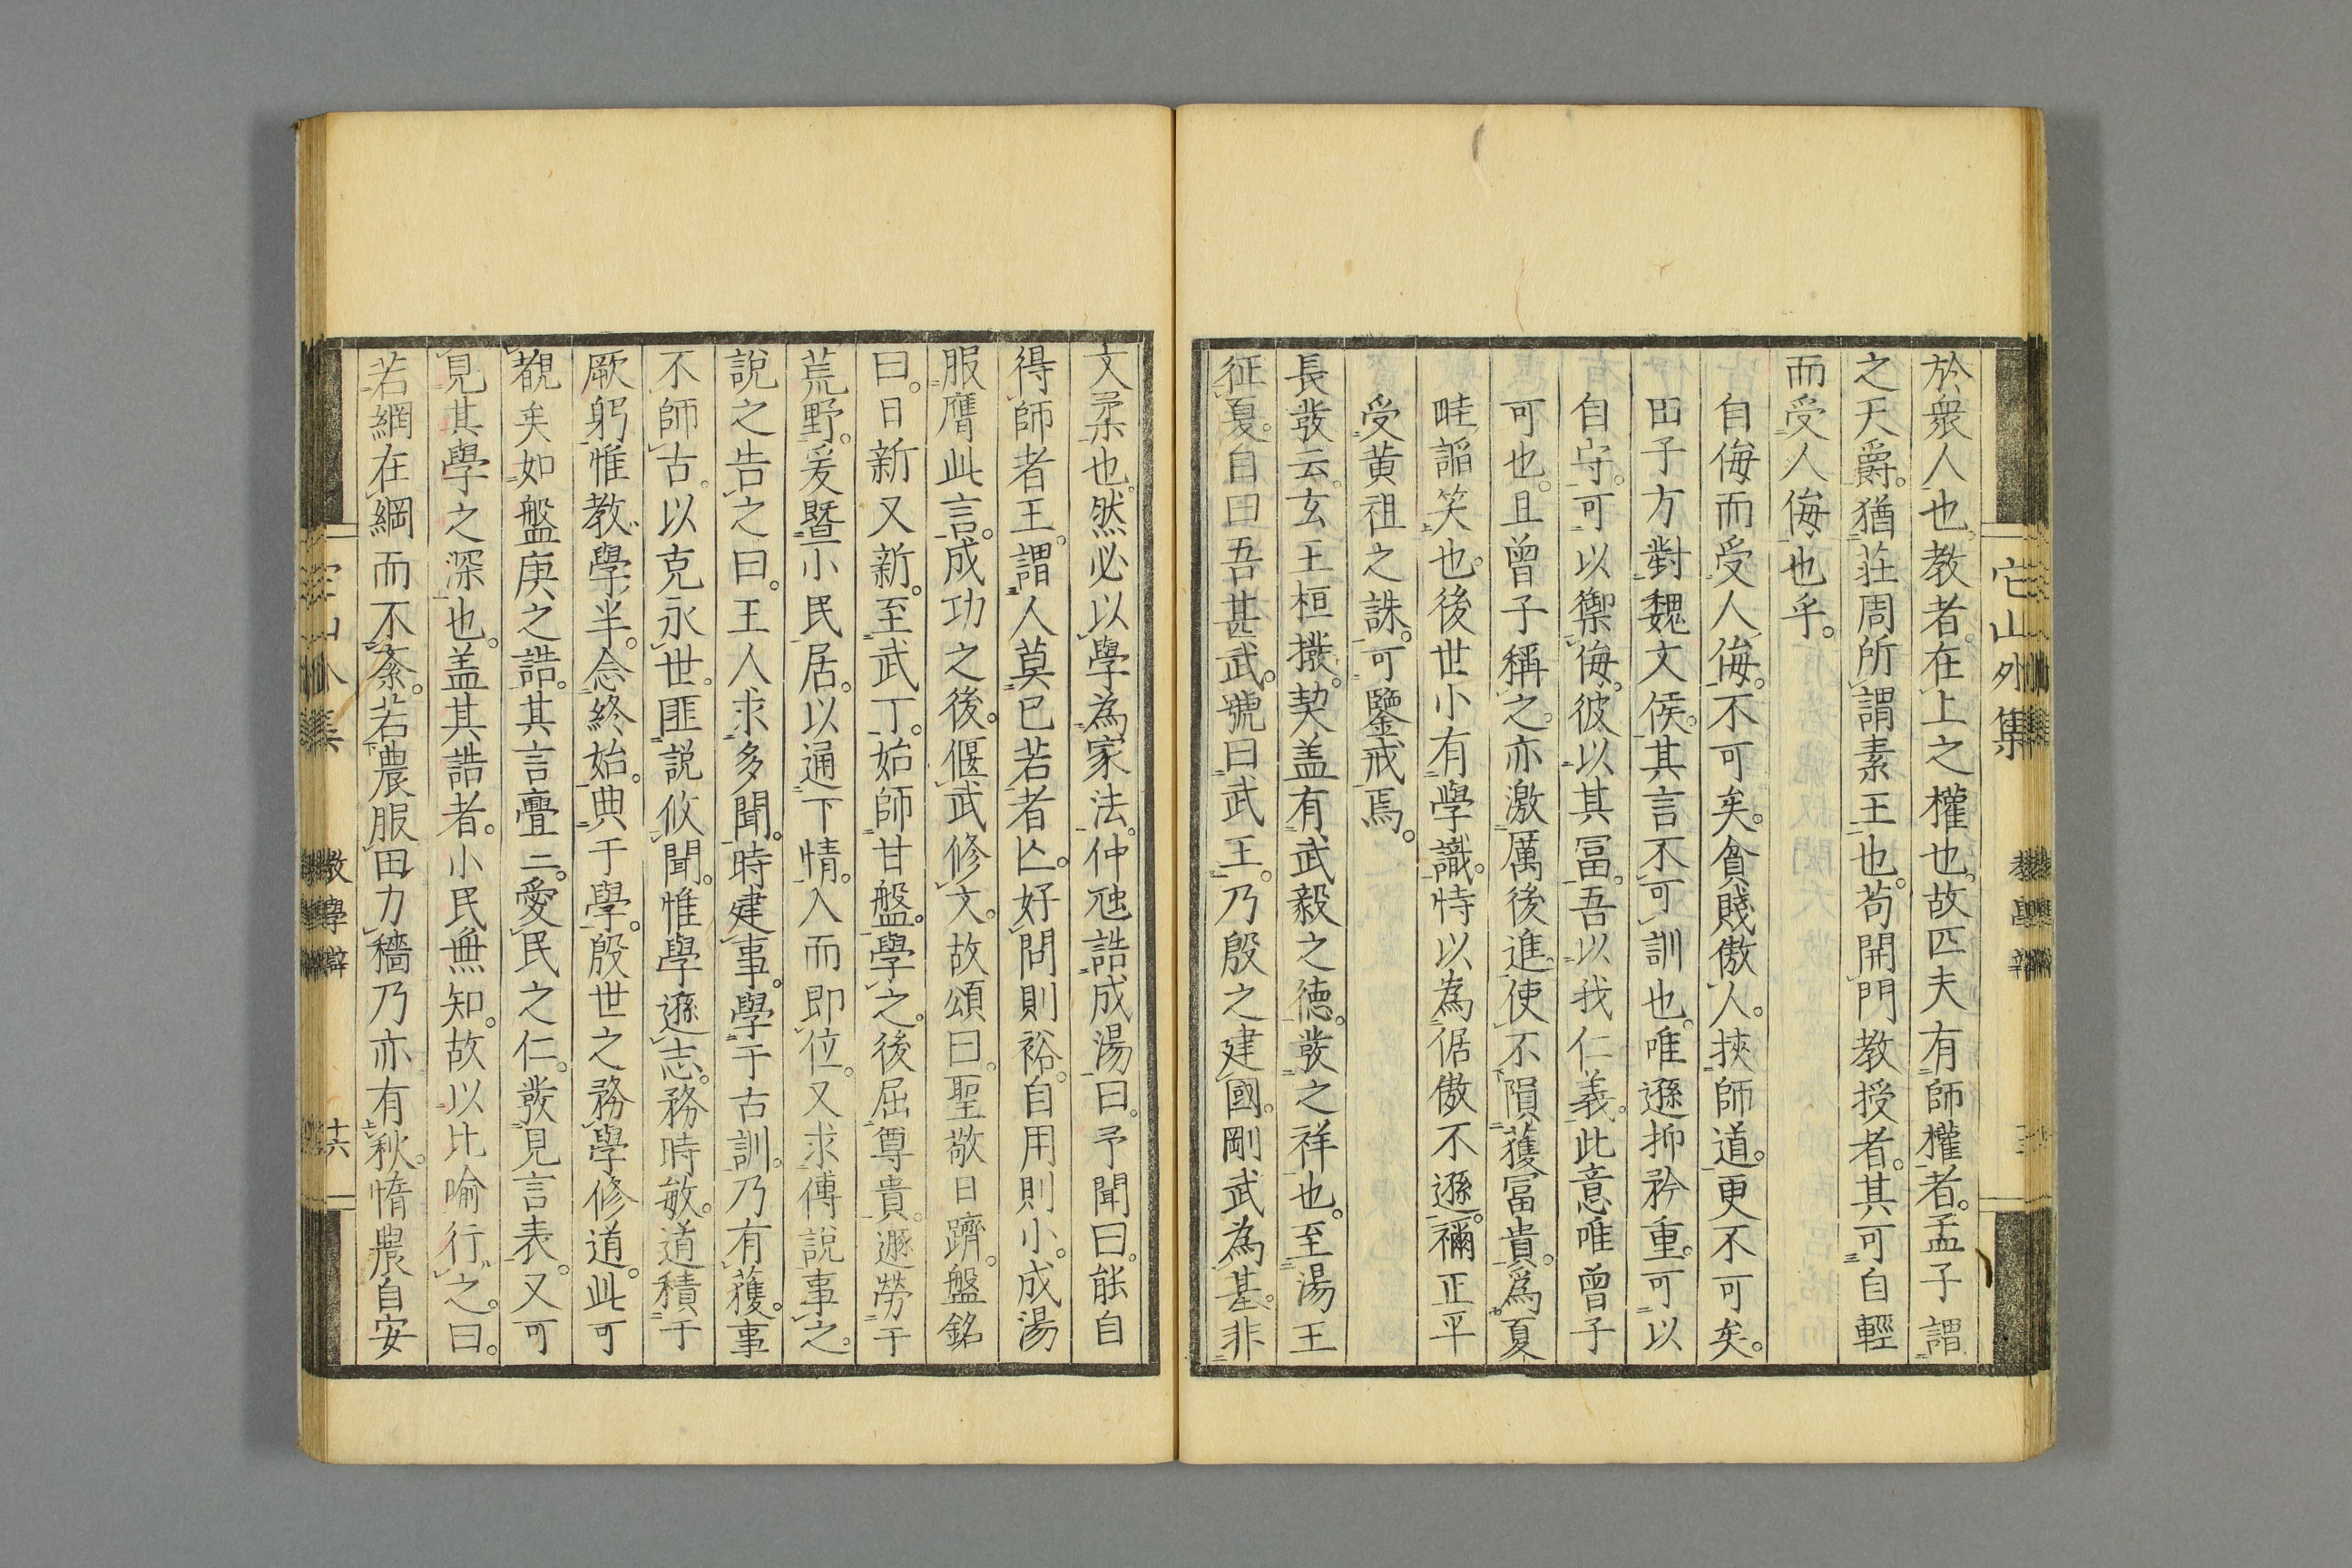 於衆人也教者在上之權也故匹夫有師權者孟子謂
之天爵猶莊周所謂素王也苟開門教授者其可自輕
而受人侮也乎
自侮而受人侮不可矣貧賤傲人挾師道更不可矣
田子方對魏文侯其言不可訓也唯遜抑矜重可以
自守可以禦侮彼以其冨吾以我仁義此意唯曾子
可也且曾子稱之亦激厲後進使不隕獲冨貴爲夏
畦諂笑也後世小有學識恃以為倨傲不遜禰正平
受黄祖之誅可鑒戒焉
長發云玄王桓撥契盖有武毅之德發之祥也至湯王
征夏自曰吾甚武號曰武王乃殷之建國剛武為基非
文柔也然必以學為家法仲虺誥成湯曰予聞曰能自
得師者王謂人莫已若者亾好問則裕自用則小成湯
服膺此言成功之後偃武修文故頌曰聖敬日躋盤銘
曰日新又新至武丁始師甘盤學之後屈尊貴遯勞于
荒野爰曁小民居以通下情入而即位又求傅說事之
說之告之曰王人求多聞時建事學于古訓乃有獲事
不師古以克永世匪説攸聞惟學遜志務時敏道積于
厥躬惟教學半念終始典于學殷世之務學修道此可
觀矣如盤庚之誥其言亹〻愛民之仁發見言表又可
見其學之深也盖其誥者小民無知故以比喻行之曰
若網在綱而不紊若農服田力穡乃亦有秋惰農自安
它山外集
教學辯
十六